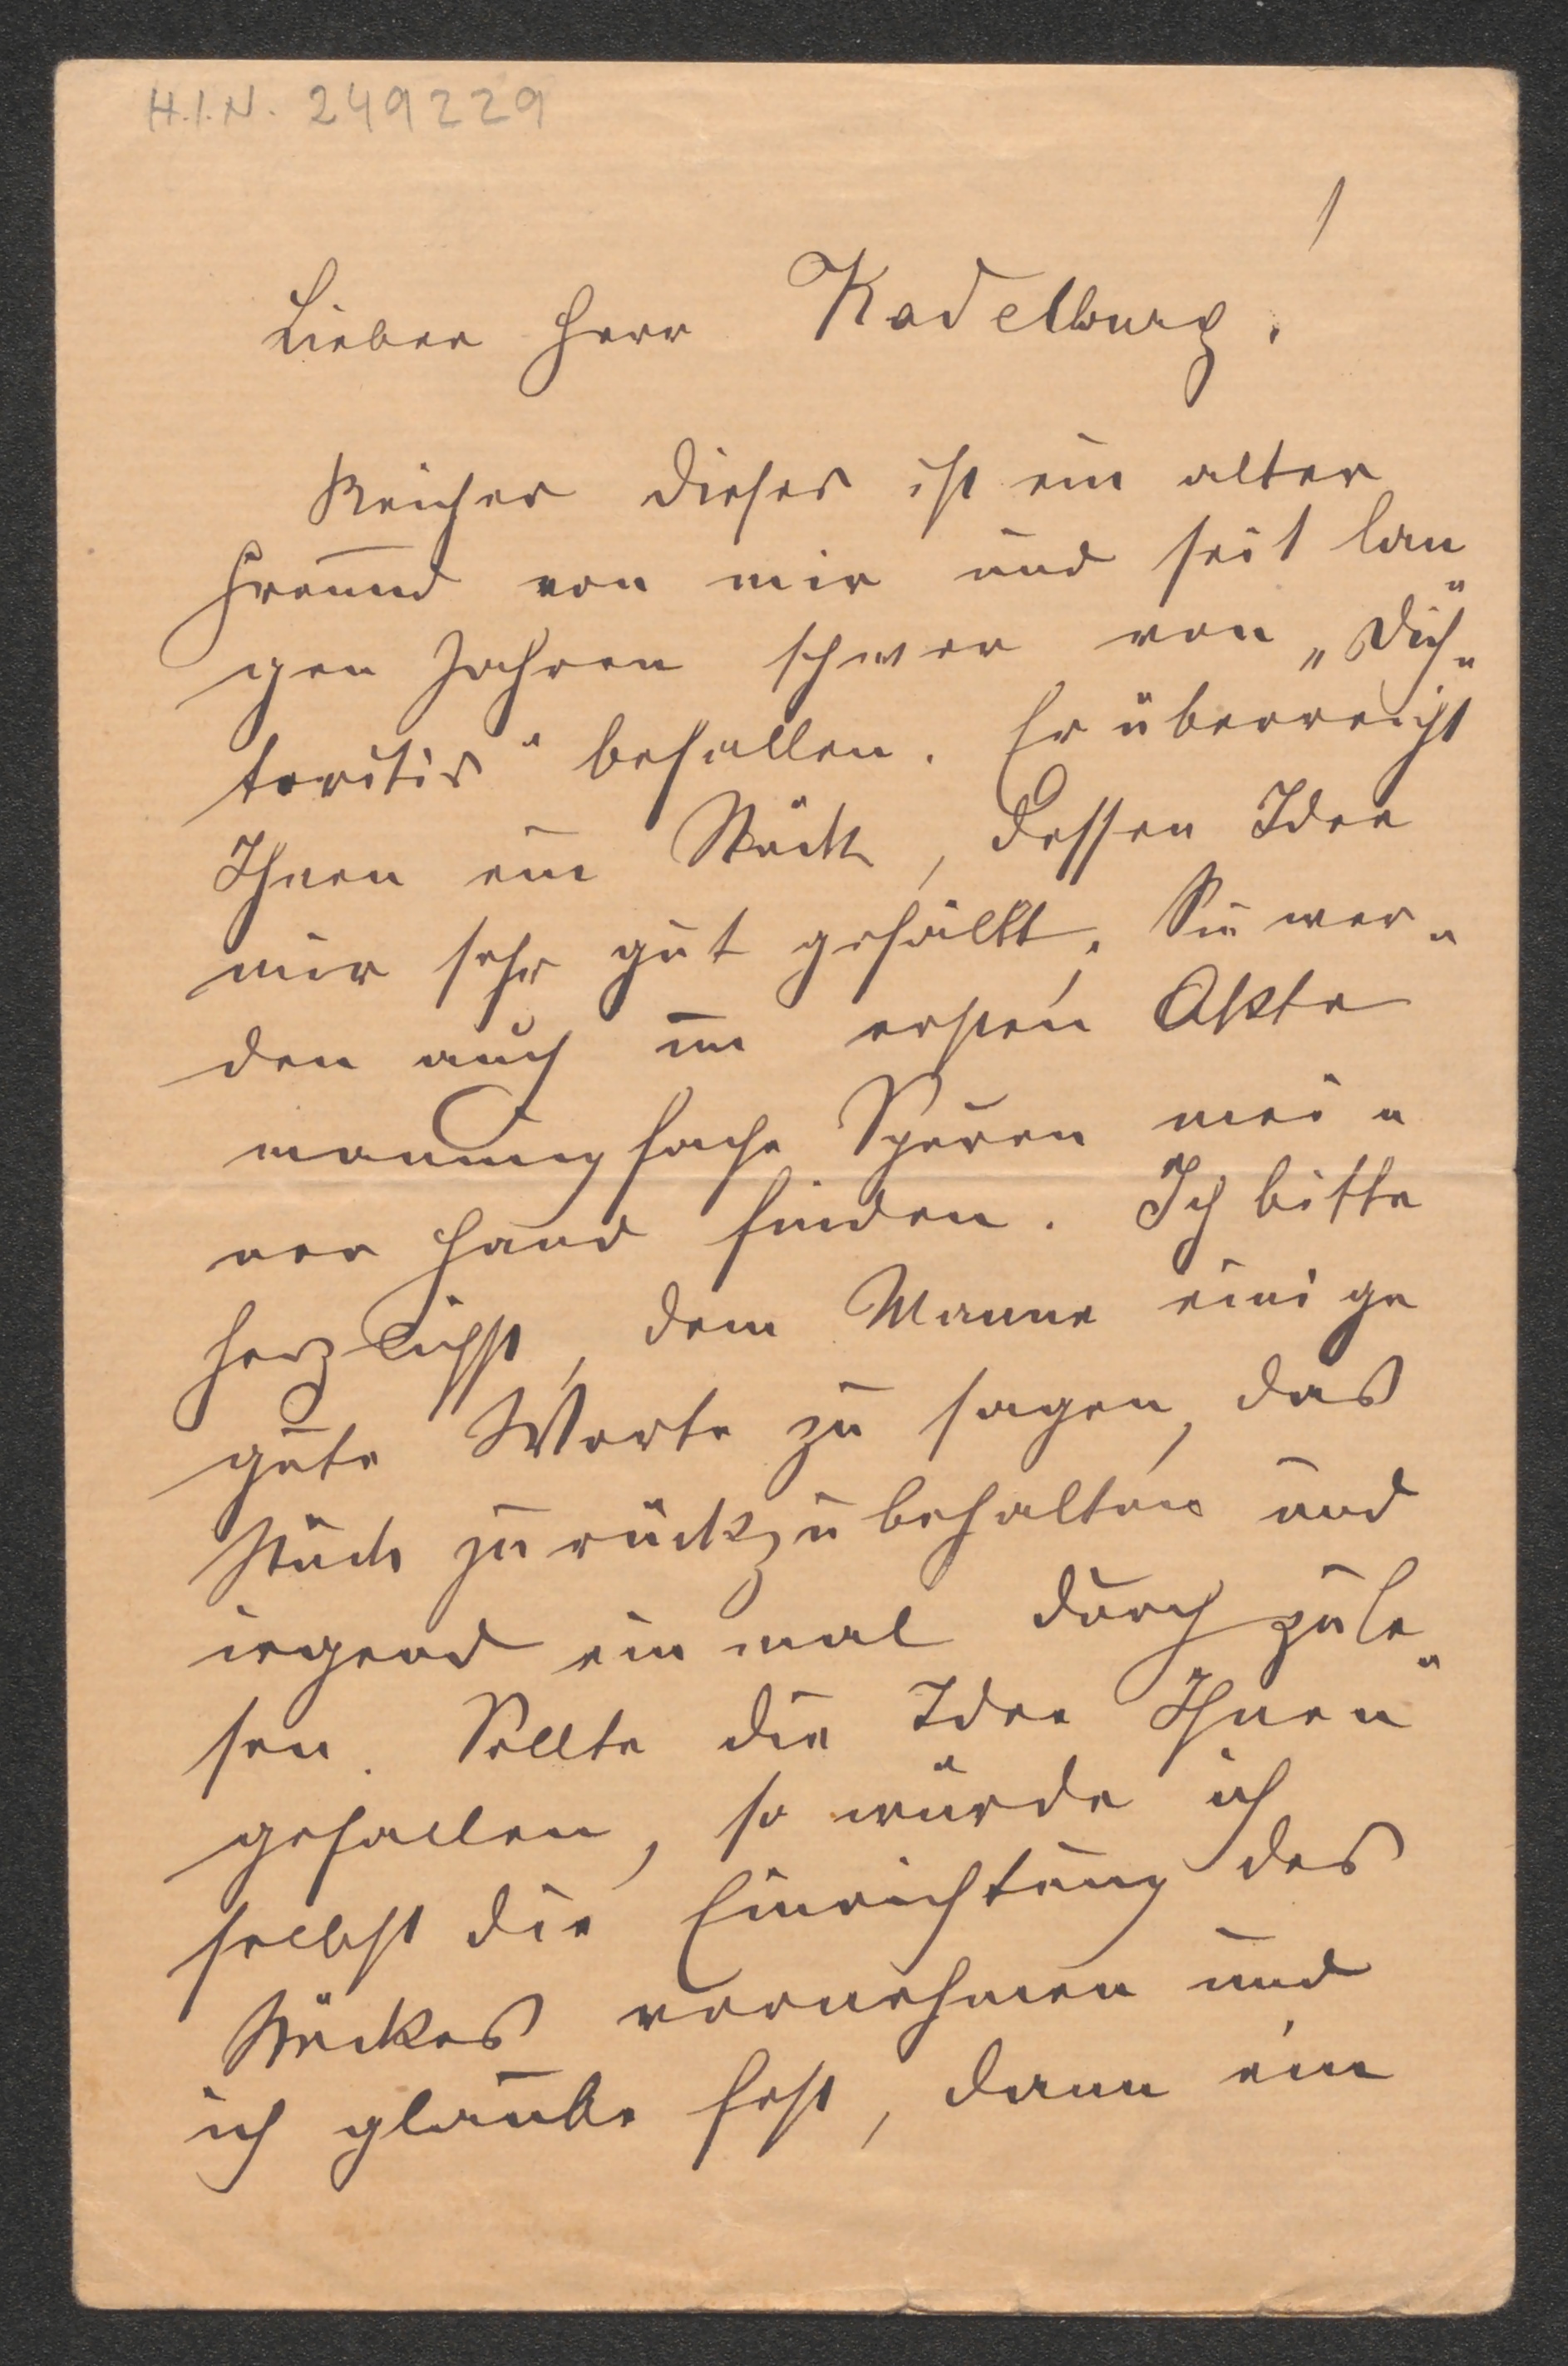 H.I.N. 249229
Lieber Herr Kadelburg!
dieses ist ein alter
Freund von mir und seit lan„
gen Jahren schwer von „Dich„
teritis“ befallen. Er überreicht
Ihnen ein Stück, dessen Idee
mir sehr gut gefällt. Sie wer„
den auch im ersten Akte
mannigfache Spuren mei„
ner Hand finden. Ich bitte
herzlichst, dem Manne einige
gute Worte zu sagen, das
Stück zurückzubehalten und
irgend einmal durchzule„
sen. Sollte die Idee Ihnen
gefallen, so würde ich
selbst die Einrichtung des
Stückes vornehmen und
ich glaube fest, dann ein